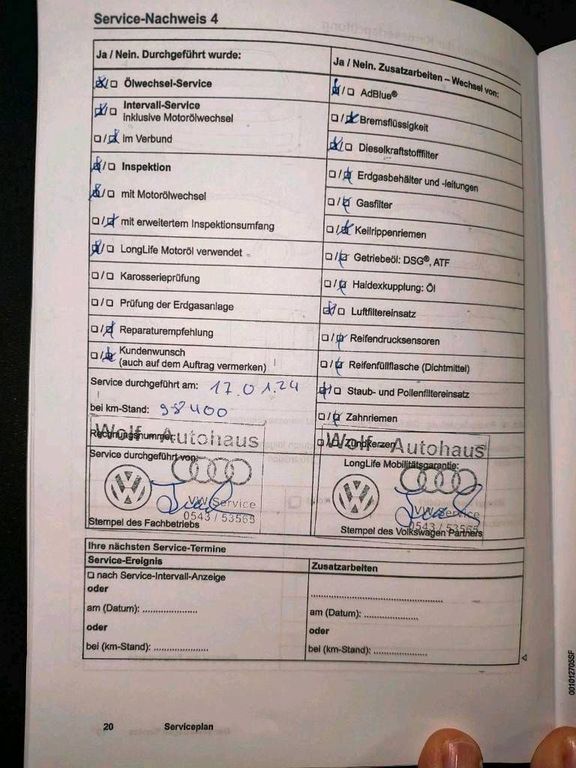 Service-Nachweis 4
Ja / Nein. Durchgeführt wurde:
☒/☐ Ölwechsel-Service
☒/☐ Intervall-Service
inklusive Motorölwechsel
☐/☒ im Verbund
☒/☐ Inspektion
☒/☐ mit Motorölwechsel
☐/☒ mit erweitertem Inspektionsumfang
☒/☐ LongLife Motoröl verwendet
☐/☐ Karosserieprüfung
☐/☐ Prüfung der Erdgasanlage
☐/☒ Reparaturempfehlung
☐/☒ Kundenwunsch
(auch auf dem Auftrag vermerken)
Service durchgeführt am: 17.01.24
bei km-Stand: 98400
Rechnungsnummer:
Wolf - Autohaus
Service durchgeführt von:
VW Service
0543 / 53565
Stempel des Fachbetriebs
Ja / Nein. Zusatzarbeiten – Wechsel von:
☒/☐ AdBlue®
☐/☒ Bremsflüssigkeit
☒/☐ Dieselkraftstofffilter
☐/☒ Erdgasbehälter und -leitungen
☐/☒ Gasfilter
☐/☒ Keilrippenriemen
☐/☒ Getriebeöl: DSG®, ATF
☐/☒ Haldexkupplung: Öl
☒/☐ Luftfiltereinsatz
☐/☒ Reifendrucksensoren
☐/☒ Reifenfüllflasche (Dichtmittel)
☒/☐ Staub- und Pollenfiltereinsatz
☐/☒ Zahnriemen
☐/☒ Zündkerzen
Wolf - Autohaus
LongLife Mobilitätsgarantie:
VW Service
0543 / 53565
Stempel des Volkswagen Partners
Ihre nächsten Service-Termine
Service-Ereignis
☐ nach Service-Intervall-Anzeige
oder
am (Datum): ..................
oder
bei (km-Stand): ..................
Zusatzarbeiten
...........................................
am (Datum): ..................
oder
bei (km-Stand): ..................
20 Serviceplan
001012705SF